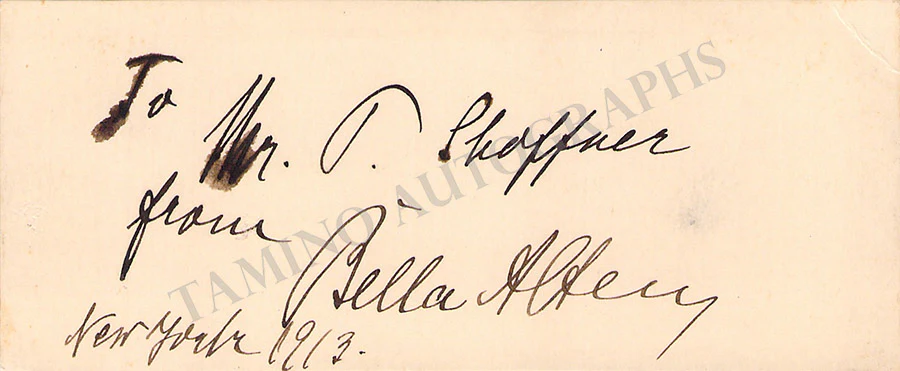 To
Mr. T. Shoffner
from
Bella Alten
New York 1913.
TAMINO AUTOGRAPHS